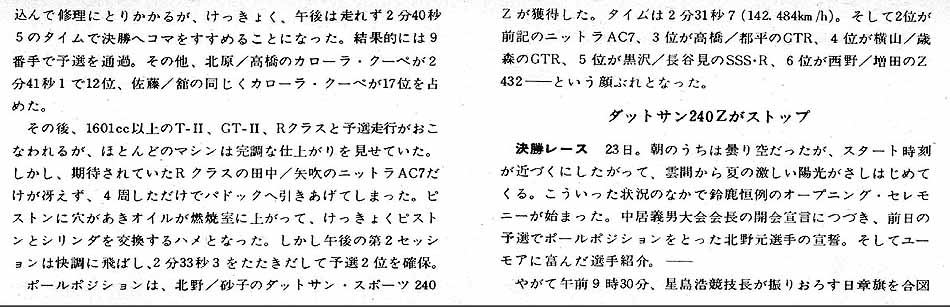 込んで修理にとりかかるが、けっきょく、午後は走れず2分40秒
5のタイムで決勝へコマをすすめることになった。結果的には9
番手で予選を通過。その他、北原/高橋のカローラ・クーペが2
分41秒1で12位、佐藤/舘の同じくカローラ・クーペが17位を占
めた。
その後、1601cc以上のT-II、GT-II、Rクラスと予選走行がおこ
なわれるが、ほとんどのマシンは完調な仕上がりを見せていた。
しかし、期待されていたRクラスの田中/矢吹のニットラAC7だ
けが冴えず、4周しただけでパドックへ引きあげてしまった。ピ
ストンに穴があきオイルが燃焼室に上がって、けっきょくピスト
ンとシリンダを交換するハメとなった。しかし午後の第2セッシ
ョンは快調に飛ばし、2分33秒3をたたきだして予選2位を確保。
ポールポジションは、北野/砂子のダットサン・スポーツ240
Zが獲得した。タイムは2分31秒7(142.484km/h)。そして2位が
前記のニットラAC7、3位が高橋/都平のGTR、4位が横山/歳
森のGTR、5位が黒沢/長谷見のSSS・R、6位が西野/増田のZ
432——という顔ぶれとなった。
ダットサン240Zがストップ
決勝レース 23日。朝のうちは曇り空だったが、スタート時刻
が近づくにしたがって、雲間から夏の激しい陽光がさしはじめて
くる。こういった状況のなかで鈴鹿恒例のオープニング・セレモ
ニーが始まった。中居義男大会会長の開会宣言につづき、前日の
予選でポールポジションをとった北野元選手の宣誓。そしてユー
モアに富んだ選手紹介。——
やがて午前9時30分、星島浩競技長が振りおろす日章旗を合図